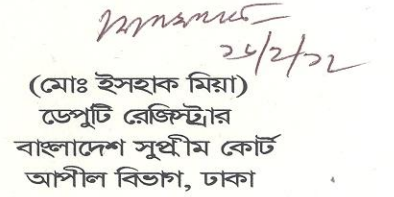 (মোঃ ইসহাক মিয়া)
ডেপুটি রেজিস্ট্রার
বাংলাদেশ সুপ্রীম কোর্ট
আপীল বিভাগ, ঢাকা